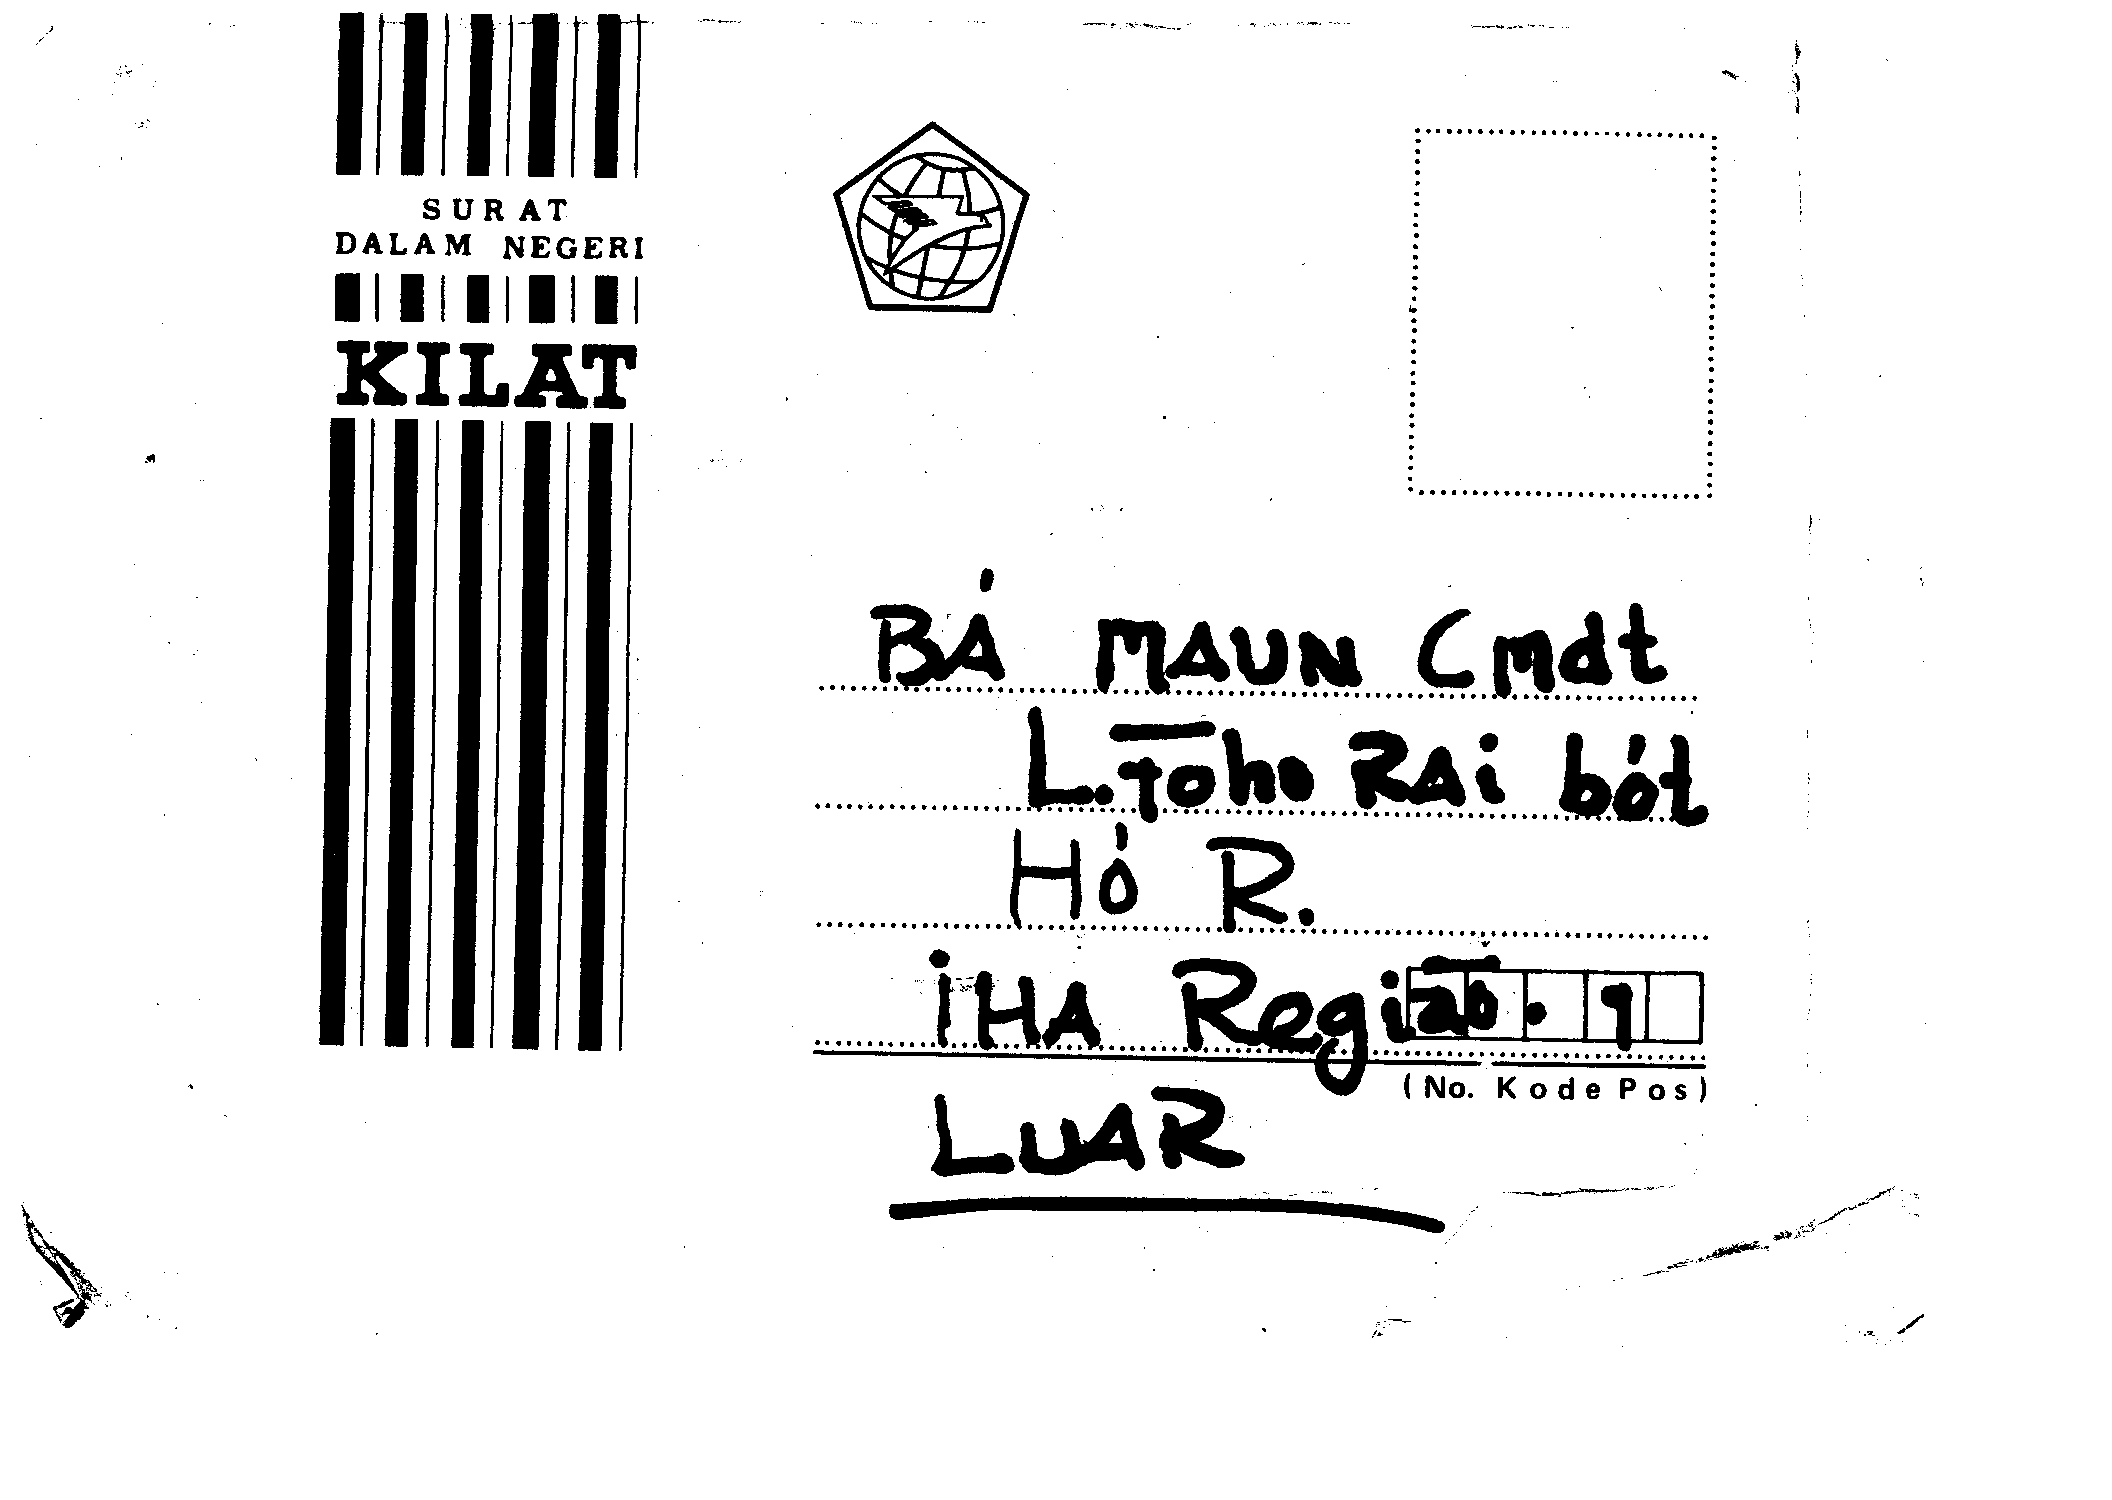 SURAT
DALAM NEGERI
KILAT
BÁ MAUN Cmdt
L. Toho RAi bót
Hó R.
iHA Região. 1
(No. Kode Pos)
LUAR